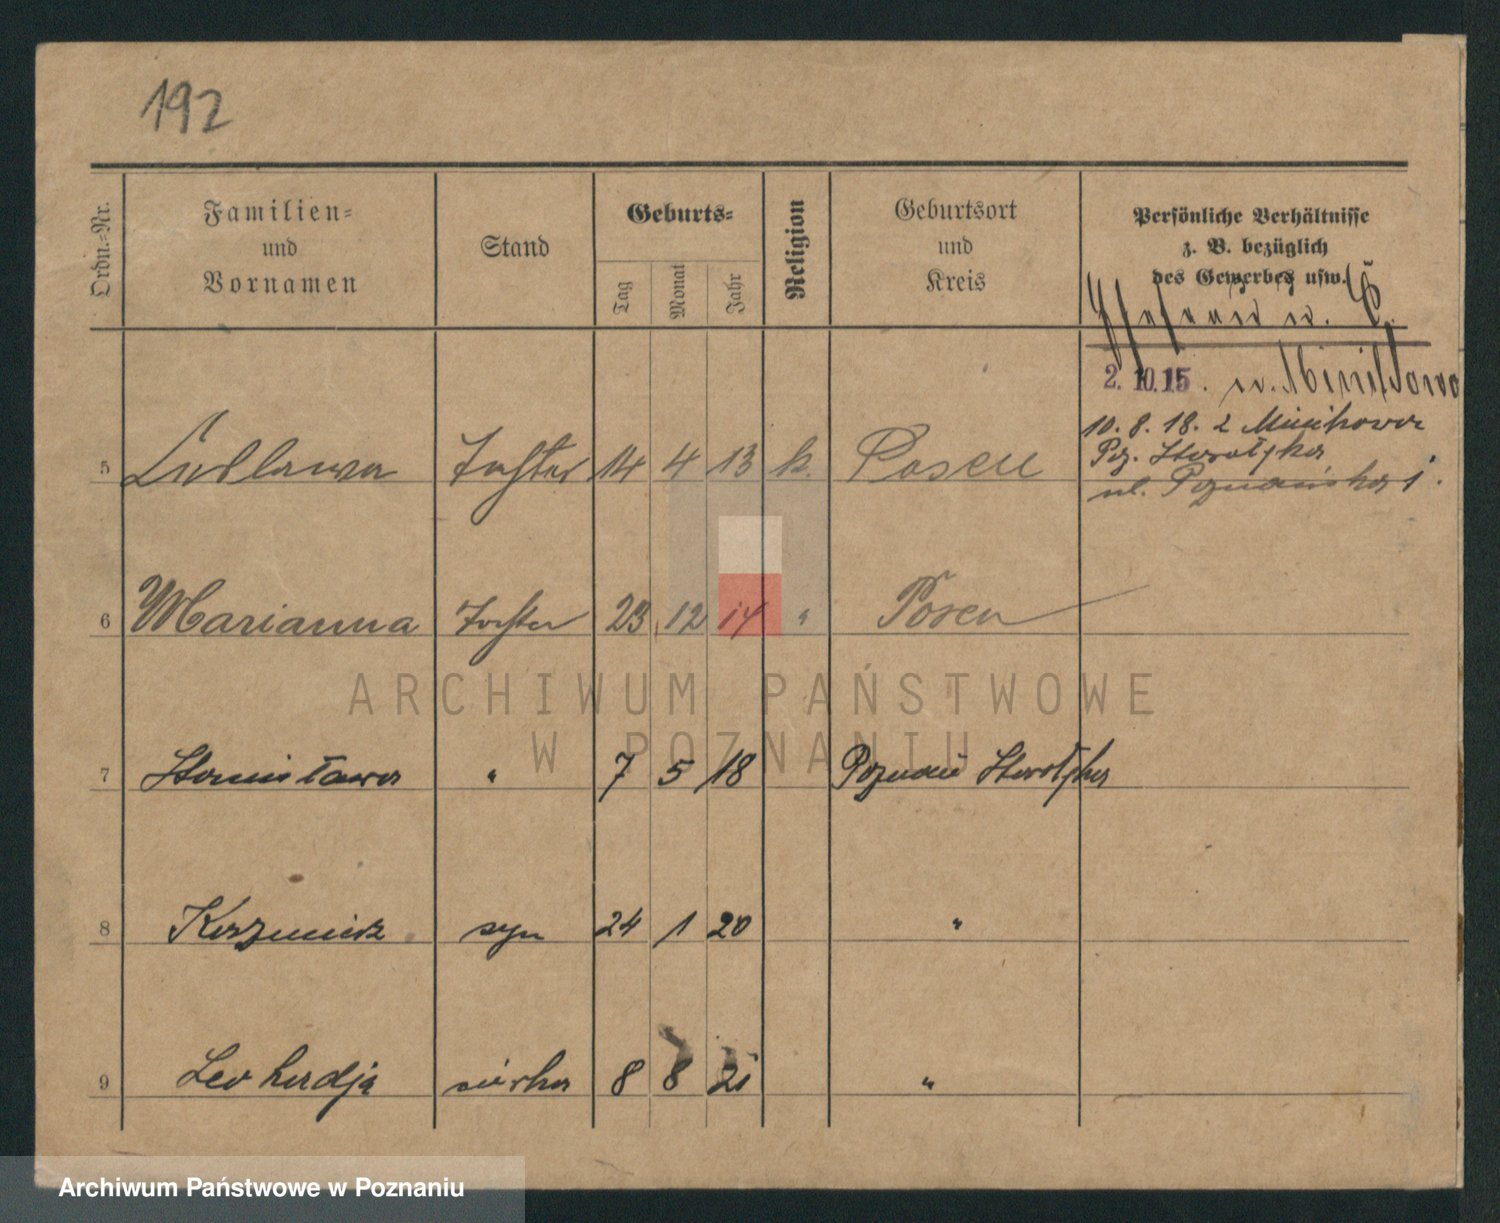 192
Ordn.-Nr.
Familien-
und
Vornamen
Stand
Geburts-
Tag
Monat
Jahr
Religion
Geburtsort
und
Kreis
Persönliche Verhältnisse
z. B. bezüglich
des Gewerbes usw.
2. 10. 15. w.
10. 8. 18. z
5 Ludlawa Tochter 14 4 13 k. Posen
ul. Poznańska 1.
6 Marianna Tochter 23 12 14 " Posen
ARCHIWUM PAŃSTWOWE
W POZNANIU
7 Stanisława " 7 5 18 Poznań Starołęka
8 Kazimierz syn 24 1 20 "
9 Leokardja córka 8 8 21 "
Archiwum Państwowe w Poznaniu